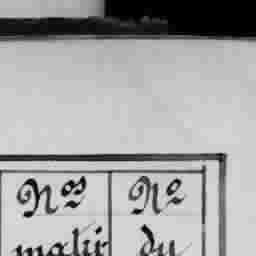 Nos No
matir du